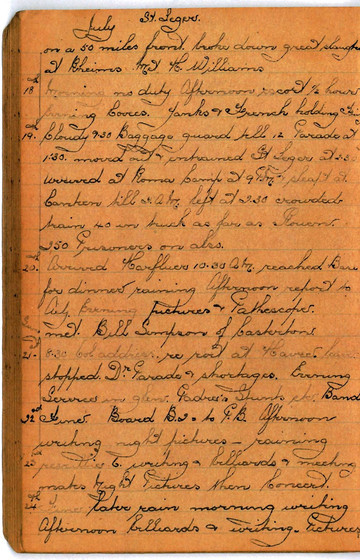 July St. Leger.
on a 50 miles front broke down great slaughter
at Rheims. Met H. Williams
18th Morning no duty Afternoon escort ½ hour
Evening Cores. Yanks & French holding
19. Cloudy 9.30 Baggage guard till 12 Parade at
1.30. moved out & entrained St Leger at
arrived at Roma Camp at 9 slept at
Canteen till 2 left at 2.30 crowded
train 40 in truck as far as Rouen.
250 Prisoners on also.
20. Arrived Harfluer 10.30 reached Base
for dinner raining Afternoon report to
Adj. Evening pictures & Pathescope.
met Bill Simpson of Casterton
21. 8.30 Col address, re at Havre
stopped. Dr Parade & shortages. Evening
Services in glen. Padres etc. Band
22nd Fine. Board B.2. to P.B. Afternoon
writing night pictures - raining
23 writing & billiards & meeting
mates Night Pictures then Concert.
24th later rain morning writing
Afternoon billiards & writing. Pictures